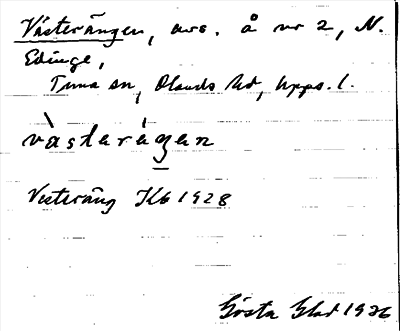 Västerängen, avs. å nr 2, N.
Edinge,
Tuna sn, Olands hd, Upps. l.
västeräŋen
Vesteräng Kb 1928
Gösta Glad 1936